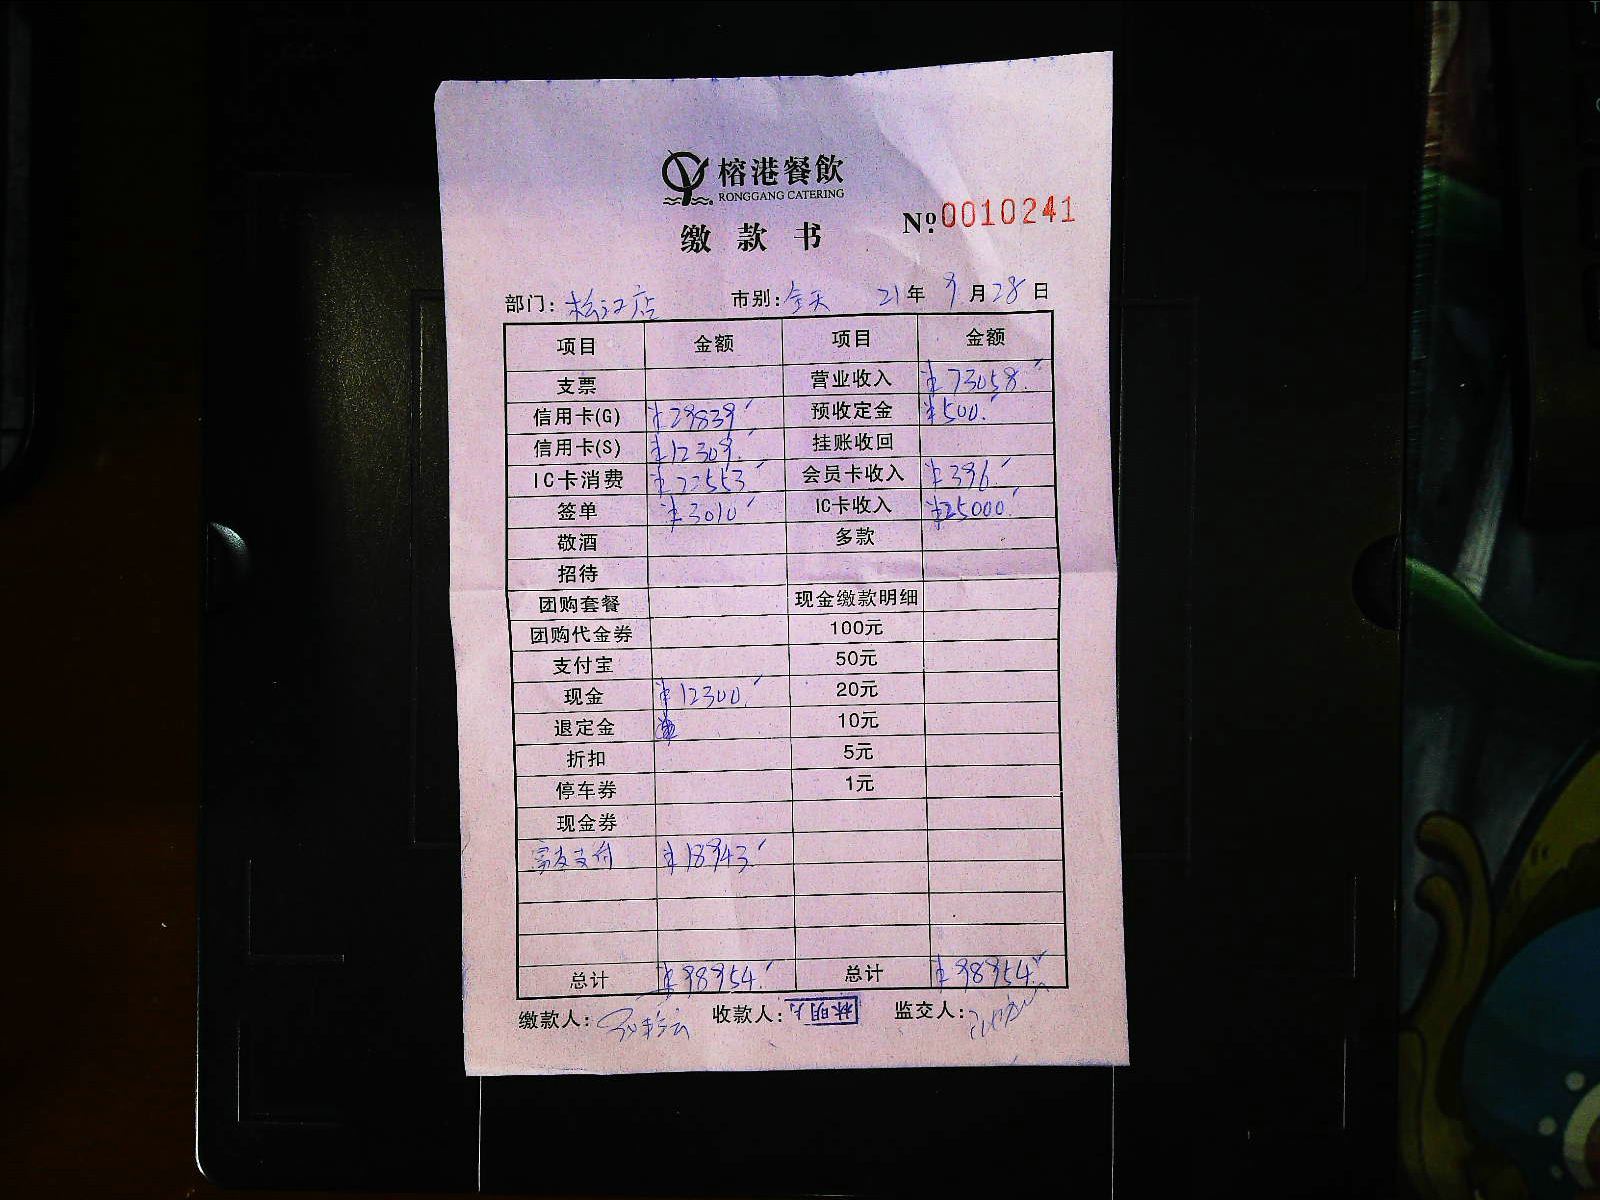 榕港餐飲
RONGGANG CATERING
缴款书
№:0010241
部门:松江店 市别:全天 21年 9月28日
项目 金额 项目 金额
支票 营业收入 ¥73058.
信用卡(G) ¥29839 预收定金 ¥500.
信用卡(S) ¥12309. 挂账收回
IC卡消费 ¥22553 会员卡收入 ¥396.
签单 ¥3010 IC卡收入 ¥25000.
敬酒 多款
招待
团购套餐 现金缴款明细
团购代金券 100元
支付宝 50元
现金 ¥12300. 20元
退定金 10元
折扣 5元
停车券 1元
现金券
富友支付 ¥18943.
总计 ¥98954. 总计 ¥98954.
缴款人: 收款人: 监交人: